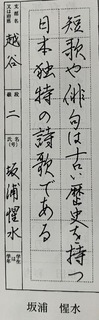 短歌や俳句は古い歴史を持つ
日本独特の詩歌である
支部名
又は府県
越谷
段級
二
氏名
(号)
坂浦惺水
学生は
学年
坂浦　惺水